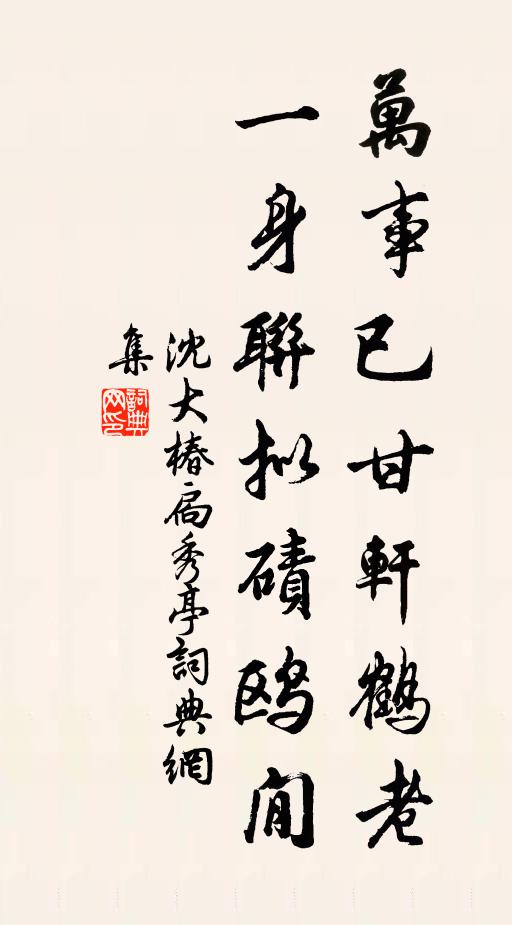 萬事已甘軒鶴老
一身聯拟磧鸥閒
沈大椿扁秀亭詞典網
集
詞典
网印